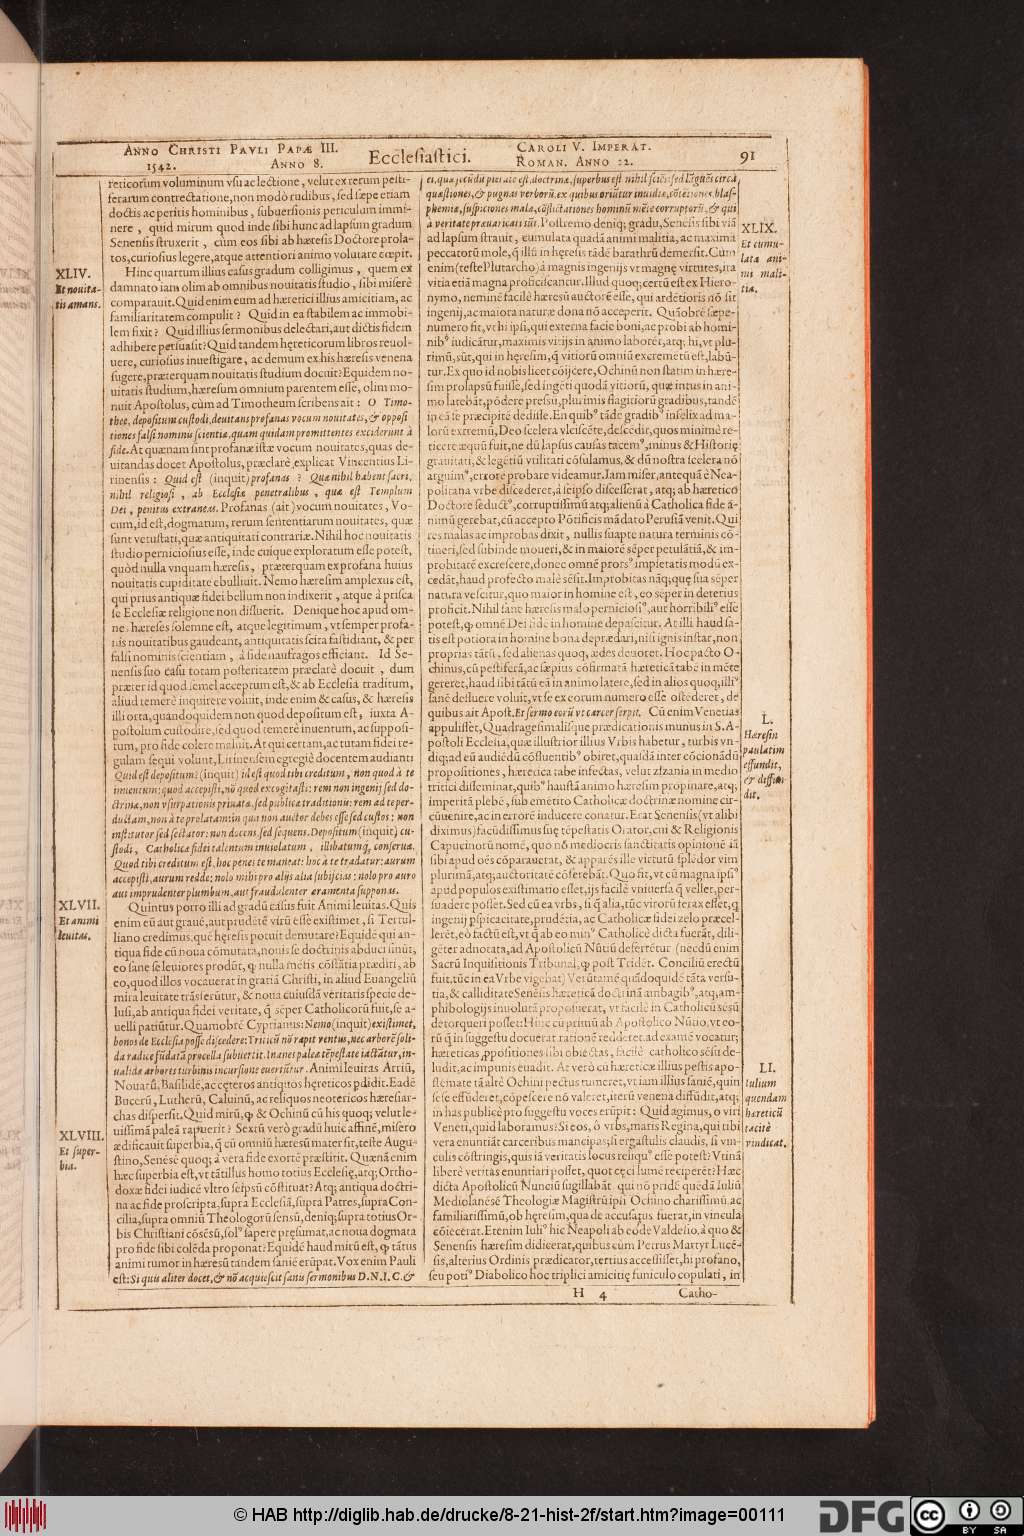 ANNO CHRISTI PAVLI PAPÆ III.
1542. ANNO 8.
Ecclesiastici.
CAROLI V. IMPERAT.
ROMAN. ANNO 22.
91
reticorum voluminum vsu ac lectione, velut ex rerum pesti-
ferarum contrectatione, non modò rudibus, sed sæpe etiam
doctis ac peritis hominibus, subuersionis periculum immi-
nere, quid mirum quod inde sibi hunc ad lapsum gradum
Senensis struxerit, cùm eos sibi ab hæresis Doctore prola-
tos, curiosius legere, atque attentiori animo volutare cœpit.
XLIV.
Et nouita-
tis amans.
Hinc quartum illius casus gradum colligimus, quem ex
damnato iam olim ab omnibus nouitatis studio, sibi miserè
comparauit. Quid enim eum ad hæretici illius amicitiam, ac
familiaritatem compulit? Quid in ea stabilem ac immobi-
lem fixit? Quid illius sermonibus delectari, aut dictis fidem
adhibere persuasit? Quid tandem hęreticorum libros reuol-
uere, curiosius inuestigare, ac demum ex his hæresis venena
sugere, præterquam nouitatis studium docuit? Equidem no-
uitatis studium, hæresum omnium parentem esse, olim mo-
nuit Apostolus, cùm ad Timotheum scribens ait: O Timo-
thee, depositum custodi, deuitans profanas vocum nouitates, & opposi-
tiones falsi nominis scientiæ, quam quidam promittentes exciderunt à
fide. At quænam sint profanæ istæ vocum nouitates, quas de-
uitandas docet Apostolus, præclarè explicat Vincentius Li-
rinensis: Quid est (inquit) profanas? Quæ nihil habent sacri,
nihil religiosi, ab Ecclesiæ penetralibus, quæ est Templum
Dei, penitus extraneas. Profanas (ait) vocum nouitates, Vo-
cum, id est, dogmatum, rerum sententiarum nouitates, quæ
sunt vetustati, quæ antiquitati contrariæ. Nihil hoc nouitatis
studio perniciosius esse, inde cuique exploratum esse potest,
quòd nulla vnquam hæresis, præterquam ex profana huius
nouitatis cupiditate ebulliuit. Nemo hæresim amplexus est,
qui prius antiquæ fidei bellum non indixerit, atque à prisca
se Ecclesiæ religione non dissuerit. Denique hoc apud om-
nes hæreses solemne est, atque legitimum, vt semper profa-
nis nouitatibus gaudeant, antiquitatis scita fastidiant, & per
falsi nominis scientiam, à fide naufragos efficiant. Id Se-
nensis suo casu totam posteritatem præclarè docuit, dum
præter id quod semel acceptum est, & ab Ecclesia traditum,
aliud temerè inquirere voluit, inde enim & casus, & hæresis
illi orta, quandoquidem non quod depositum est, iuxta A-
postolum custodire, sed quod temerè inuentum, ac supposi-
tum, pro fide colere maluit. At qui certam, ac tutam fidei re-
gulam sequi volunt, Lirinensem egregiè docentem audiant:
Quid est depositum? (inquit) id est quod tibi creditum, non quod à te
inuentum: quod accepisti, nō quod excogitasti: rem non ingenij sed do-
ctrinæ, non vsurpationis priuatæ, sed publicæ traditionis: rem ad te per-
ductam, non à te prolatam: in qua non auctor debes esse sed custos: non
institutor sed sectator: non ducens, sed sequens. Depositum (inquit) cu-
stodi, Catholicæ fidei talentum inuiolatum, illibatumq́; conserua.
Quod tibi creditum est, hoc penes te maneat: hoc à te tradatur: aurum
accepisti, aurum redde: nolo mihi pro alijs alia subijcias: nolo pro auro
aut imprudenter plumbum, aut fraudulenter æramenta supponas.
XLVII.
Et animi
leuitas.
Quintus porro illi ad gradū casus fuit Animi leuitas. Quis
enim eū aut grauē, aut prudētē virū esse existimet, si Tertul-
liano credimus, quē hęresis potuit demutare? Equidē qui an-
tiqua fide cū noua cōmutata, nouis se doctrinis abduci sinūt,
eo sane se leuiores produnt, ꝙ nulla mētis cōstātia præditi, ab
eo, quod illos vocauerat in gratiā Christi, in aliud Euangeliū
mira leuitate trāsferūtur, & noua cuiusdā veritatis specie de-
lusi, ab antiqua fidei veritate, q̄ sēper Catholicorū fuit, se a-
uelli patiūtur. Quamobrē Cyprianus: Nemo (inquit) existimet,
bonos de Ecclesia posse discedere: Triticū nō rapit ventus, nec arborē soli-
da radice fūdatā procella subuertit. Inanes paleæ tēpestate iactātur, in-
ualidæ arbores turbinis incursione euertūtur. Animi leuitas Arriū,
Nouatū, Basilidē, ac cęteros antiquos hęreticos pdidit. Eadē
Bucerū, Lutherū, Caluinū, ac reliquos neotericos hæresiar-
chas dispersit. Quid mirū, ꝙ & Ochinū cū his quoq; velut le-
uissimā paleā rapuerit?
XLVIII.
Et super-
bia.
Sextū verò gradū huic affinē, misero
ædificauit superbia, q̄ cū omniū hæresū mater sit, teste Augu-
stino, Senēsē quoq; à vera fide exortē præstitit. Quænā enim
hæc superbia est, vt tātillus homo totius Ecclesię, atq; Ortho-
doxæ fidei iudicē vltro seipsū cōstituat? Atq; antiqua doctri-
na ac fide proscripta, supra Ecclesiā, supra Patres, supra Con-
cilia, supra omniū Theologorū sensū, deniq; supra totius Or-
bis Christiani cōsēsū, solꝰ sapere pręsumat, ac noua dogmata
pro fide sibi colēda proponat? Equidē haud mirū est, ꝙ tātus
animi tumor in hæresū tandem saniē erūpat. Vox enim Pauli
est: Si quis aliter docet, & nō acquiescit sanis sermonibus D.N.I.C. &
ei, quæ secūdū pietatē est, doctrinæ, superbus est nihil sciēs: sed lāguēs circa
quæstiones, & pugnas verborū, ex quibus oriūtur inuidiæ, cōtētiones, blas-
phemiæ, suspiciones malæ, cōflictationes hominū mēte corruptorū, & qui
à veritate præuaricati sūt.
XLIX.
Et cumu-
lata ani-
mi mali-
tia.
Postremo deniq; gradu, Senēsis sibi viā
ad lapsum strauit, cumulata quadā animi malitia, ac maxima
peccatorū mole, q̄ illū in hęresis tādē barathrū demersit. Cum
enim (teste Plutarcho) à magnis ingenijs vt magnę virtutes, ita
vitia etiā magna proficiscantur. Illud quoq; certū est ex Hiero-
nymo, neminē facilè hæresū auctorē esse, qui ardētioris nō sit
ingenij, ac maiora naturæ dona nō acceperit. Quāobrē sæpe-
numero fit, vt hi ipsi, qui externa facie boni, ac probi ab homi-
nibꝰ iudicātur, maximis vitijs in animo laborēt, atq; hi, vt plu-
rimū, sūt, qui in hęresim, q̄ vitiorū omniū excremētū est, labū-
tur. Ex quo id nobis licet cōijcere, Ochinū non statim in hære-
sim prolapsū fuisse, sed ingēti quodā vitiorū, quæ intus in ani-
mo latebāt, pōdere pressū, plurimis flagitiorū gradibus, tandē
in eā se præcipitē dedisse. En quibꝰ tādē gradibꝰ infelix ad ma-
lorū extremū, Deo scelera vlciscēte, descēdit, quos minimè re-
ticere æquū fuit, ne dū lapsus causas tacemꝰ, minus & Historię
grauitati, & legētiū vtilitati cōsulamus, & dū nostra scelera nō
arguimꝰ, errorē probare videamur. Iam miser, antequā è Nea-
politana vrbe discederet, à seipso discesserat, atq; ab hæretico
Doctore seductꝰ, corruptissimū atq; alienū à Catholica fide a-
nimū gerebat, cū accepto Pōtificis mādato Perusiā venit. Qui
res malas ac improbas dixit, nullis suapte natura terminis cō-
tineri, sed subinde moueri, & in maiorē sēper petulātiā, & im-
probitatē excrescere, donec omnē prorsꝰ impietatis modū ex-
cedāt, haud profecto malè sēsit. Improbitas nāq; quę sua sēper
natura vescitur, quo maior in homine est, eo sēper in deterius
proficit. Nihil sane hæresis malo perniciosiꝰ, aut horribiliꝰ esse
potest, ꝙ omnē Dei fidē in homine depascitur. At illi haud sa-
tis est potiora in homine bona deprædari, nisi ignis instar, non
proprias tātū, sed alienas quoq; ædes deuoret. Hoc pacto O-
chinus, cū pestiferā, ac sæpius cōfirmatā hæreticā tabē in mēte
gereret, haud sibi tātū eā in animo latere, sed in alios quoq; illiꝰ
sanē defluere voluit, vt se ex eorum numero esse ostēderet, de
quibus ait Apost. Et sermo eorū vt cancer serpit.
L.
Hæresin
paulatim
effundit,
& diffun-
dit.
Cū enim Venetias
appulisset, Quadragesimalisque prædicationis munus in S. A-
postoli Ecclesia, quæ illustrior illius Vrbis habetur, turbis vn-
diq; ad eū audiēdū cōfluentibꝰ obiret, quasdā inter cōcionādū
propositiones, hæretica tabe infectas, velut zizania in medio
tritici disseminat, quibꝰ haustā animo hæresim propinare, atq;
imperitā plebē, sub emētito Catholicæ doctrinæ nomine cir-
cūuenire, ac in errorē inducere conatur. Erat Senensis (vt alibi
diximus) facūdissimus suę tēpestatis Orator, cui & Religionis
Capucinorū nomē, quo nō mediocris sanctitatis opinionē iā
sibi apud oēs cōparauerat, & apparēs ille virtutū splēdor vim
plurimā, atq; auctoritatē cōferebāt. Quo fit, vt cū magna ipsiꝰ
apud populos existimatio esset, ijs facilè vniuersa q̄ vellet, per-
suadere posset. Sed cū ea vrbs, si q̄ alia, tūc virorū ferax esset, q
ingenij pspicacitate, prudētia, ac Catholicæ fidei zelo præcel-
lerēt, eo factū est, vt q̄ ab eo minꝰ Catholicè dicta fuerāt, dili-
gēter adnotata, ad Apostolicū Nūtiū deferrētur (necdū enim
Sacrū Inquisitionis Tribunal, ꝙ post Tridēt. Conciliū erectū
fuit, tūc in ea Vrbe vigebat) Verūtamē quādoquidē tāta versu-
tia, & calliditate Senēsis hæreticā doctrinā ambagibꝰ, atq; am-
phibologijs inuolutā proposuerat, vt facilè in Catholicū sēsū
detorqueri posset: Hinc cū primū ab Apostolico Nūtio, vt eo-
rū q̄ in suggestu docuerat rationē redderet, ad examē vocatur;
hæreticas ppositiones sibi obiectas, facilè catholico sēsu de-
ludit, ac impunis euadit.
LI.
Iulium
quendam
hæreticū
tacitè
vindicat.
At verò cū hæreticæ illius pestis apo-
stemate tā altè Ochini pectus tumeret, vt iam illius saniē, quin
sese effūderet, cōpescere nō valeret, iterū venena diffūdit, atq;
in has publicè pro suggestu voces erūpit: Quid agimus, o viri
Veneti, quid laboramus? Si eos, ô vrbs, maris Regina, qui tibi
vera enuntiāt carceribus mancipas; si ergastulis claudis, si vin-
culis cōstringis, quis iā veritatis locus reliquꝰ esse potest? Vtinā
liberè veritas enuntiari posset, quot cęci lumē reciperēt? Hæc
dicta Apostolicū Nunciū sugillabāt qui nō pridē quēdā Iuliū
Mediolanēsē Theologiæ Magistrū ipsi Ochino charissimū, ac
familiarissimū, ob hęresim, qua de accusatus fuerat, in vincula
cōiecerat. Etenim Iuliꝰ hic Neapoli ab eodē Valdesio, à quo &
Senensis hæresim didicerat, quibus cùm Petrus Martyr Lucē-
sis, alterius Ordinis prædicator, tertius accessisset, hi profano,
seu potiꝰ Diabolico hoc triplici amicitię funiculo copulati, in
H 4
Catho-
© HAB http://diglib.hab.de/drucke/8-21-hist-2f/start.htm?image=00111
DFG
cc
BY SA